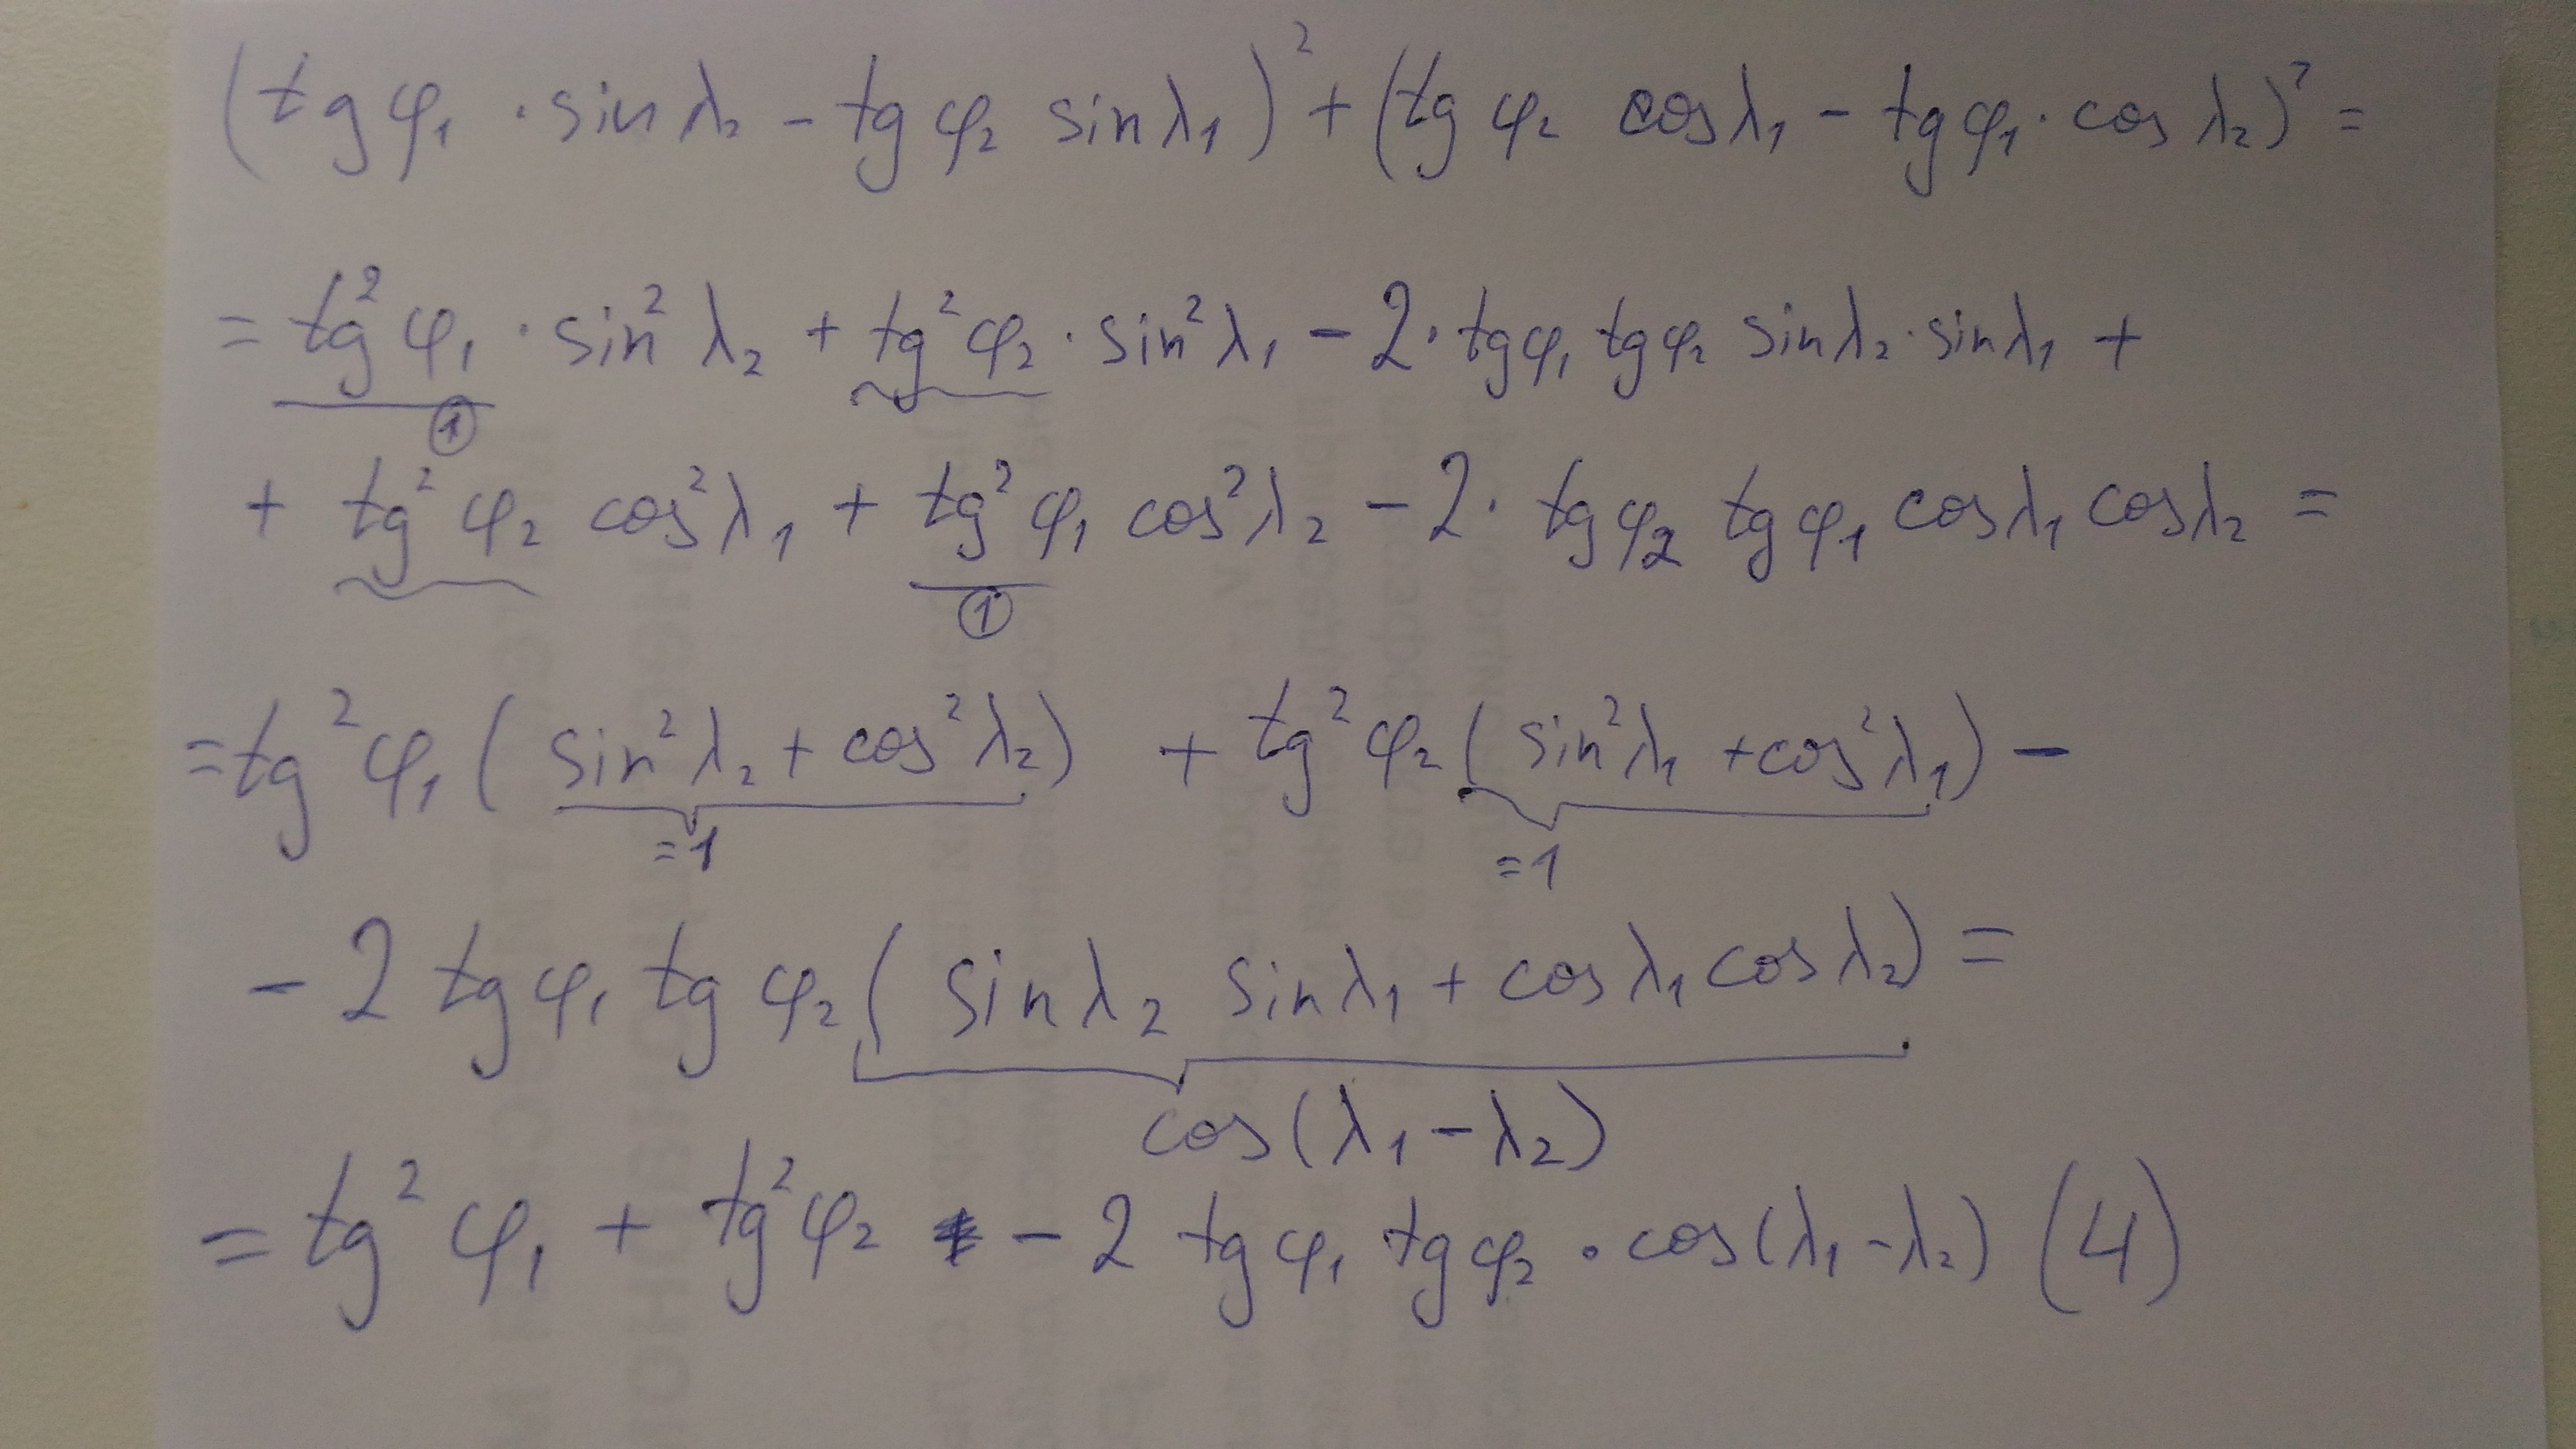 (tg φ₁ · sin λ₂ - tg φ₂ sin λ₁)² + (tg φ₂ cos λ₁ - tg φ₁ · cos λ₂)² =
= tg² φ₁ · sin² λ₂ + tg² φ₂ · sin² λ₁ - 2 · tg φ₁ tg φ₂ sin λ₂ · sin λ₁ +
①
+ tg² φ₂ cos² λ₁ + tg² φ₁ cos² λ₂ - 2 · tg φ₂ tg φ₁ cos λ₁ cos λ₂ =
①
= tg² φ₁ ( sin² λ₂ + cos² λ₂ ) + tg² φ₂ ( sin² λ₁ + cos² λ₁ ) -
=1 =1
- 2 tg φ₁ tg φ₂ ( sin λ₂ sin λ₁ + cos λ₁ cos λ₂ ) =
cos(λ₁ - λ₂)
= tg² φ₁ + tg² φ₂ - 2 tg φ₁ tg φ₂ · cos(λ₁ - λ₂) (4)